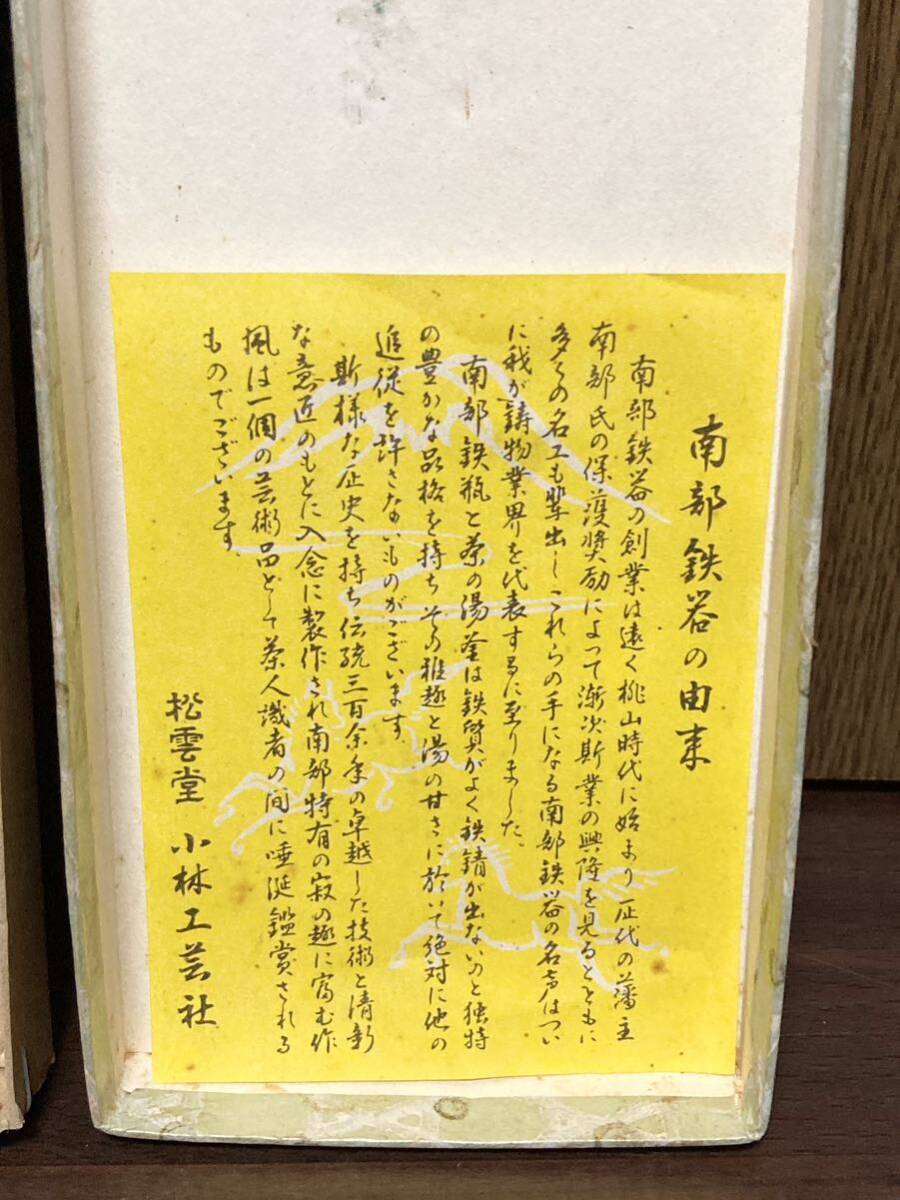 南部鉄器の由来
南部鉄器の創業は遠く桃山時代に始まり歴代の藩主
南部氏の保護奨励によって漸次斯業の興隆を見るとともに
多くの名工も輩出しこれらの手になる南部鉄器の名声はつい
に我が鋳物業界を代表するに至りました。
南部鉄瓶と茶の湯釜は鉄質がよく鉄錆が出ないのと独特
の豊かな品格を持ちその雅趣と湯の甘さに於いて絶対に他の
追従を許さないものがございます。
斯様な歴史を持ち伝統三百余年の卓越した技術と清新
な意匠のもとに入念に製作され南部特有の寂の趣に富む作
風は一個の芸術品として茶人識者の間に唾涎鑑賞される
ものでございます
松雲堂 小林工芸社